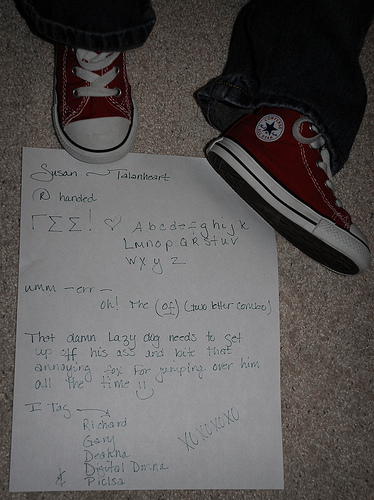 Susan ~ Talonheart
Ⓡ handed
ΓΣΣ! ♡ Abcdefghijk
Lmnop QRstuv
wxyz
umm - err -
oh! The (of) (two letter combo)
That damn Lazy dog needs to get
up off his ass and bite that
annoying fox for jumping over him
all the time
I Tag
Richard
Gary
Deatcha
Digital Donna
& Piclsa
XOXOXOXO